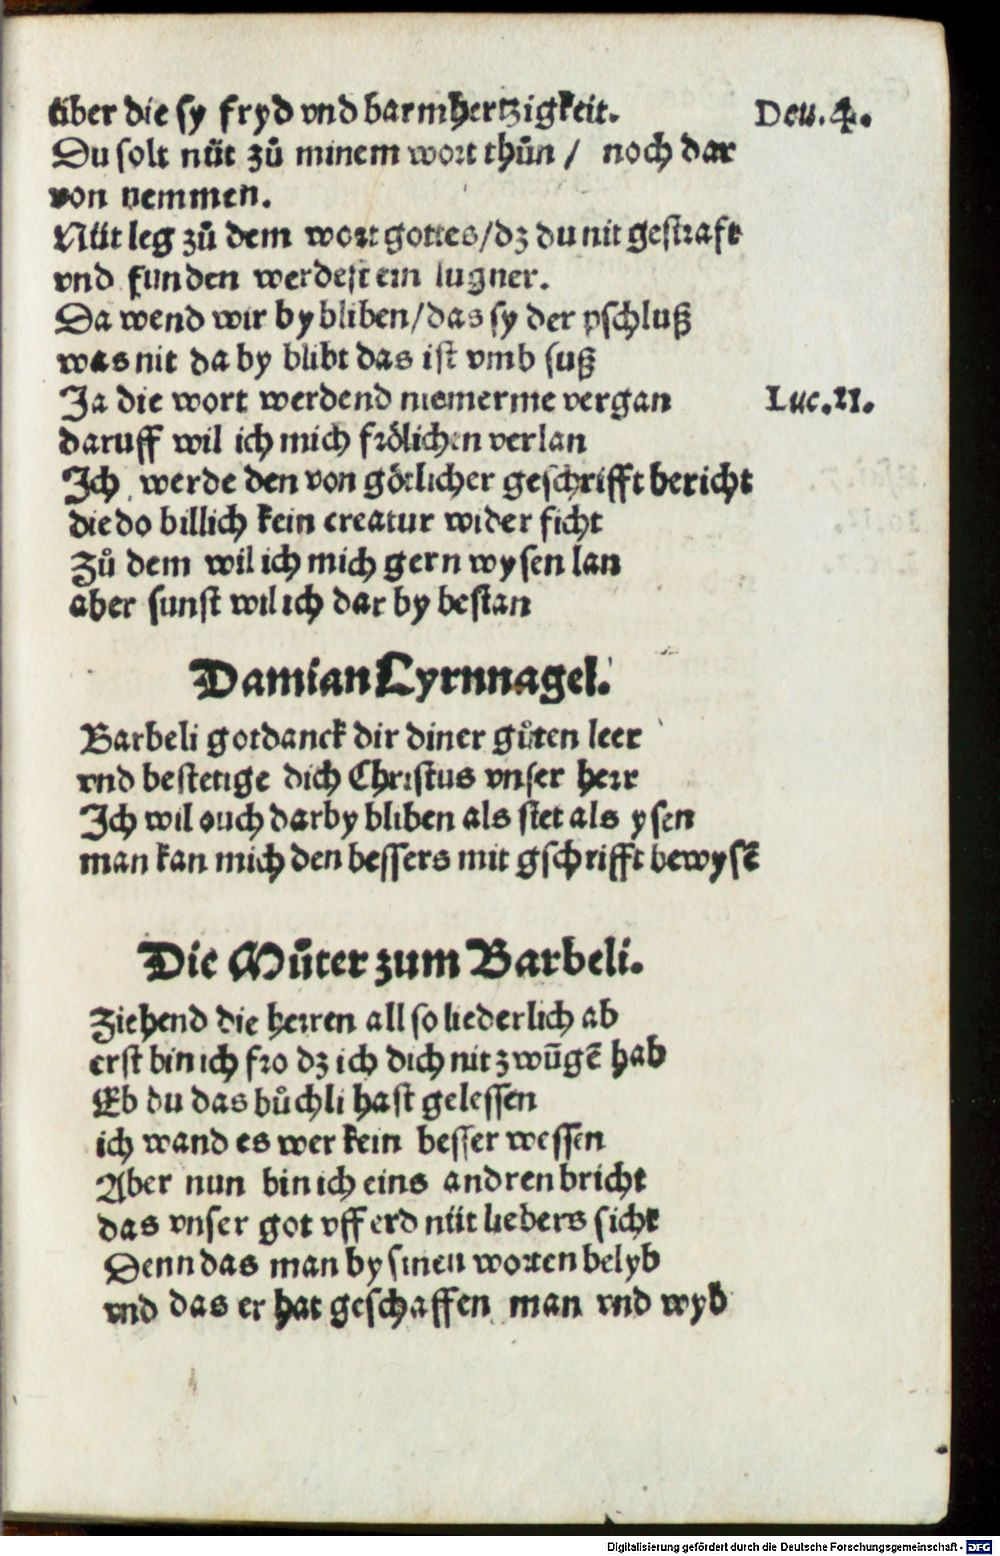 über die sy fryd vnd barmhertzigkeit. Deu. 4.
Du solt nüt zů minem wort thůn / noch dar
von nemmen.
Nüt leg zů dem wort gottes/dz du nit gestraft
vnd funden werdest ein lugner.
Da wend wir by bliben/das sy der pschluß
was nit da by blibt das ist vmb suß
Ja die wort werdend niemerme vergan Luc. 21.
daruff wil ich mich frölichen verlan
Ich werde den von götlicher geschrifft bericht
die do billich kein creatur wider ficht
Zů dem wil ich mich gern wysen lan
aber sunst wil ich dar by bestan
Damian Lyrnnagel.
Barbeli gotdanck dir diner gůten leer
vnd bestetige dich Christus vnser herr
Ich wil ouch darby bliben als stet als ysen
man kan mich den bessers mit gschrifft bewysē
Die Můter zum Barbeli.
Ziehend die herren all so liederlich ab
erst bin ich fro dz ich dich nit zwūgē hab
Eb du das bůchli hast gelessen
ich wand es wer kein besser wessen
Aber nun bin ich eins andren bricht
das vnser got vff erd nüt liebers sicht
Denn das man by sinen worten belyb
vnd das er hat geschaffen man vnd wyb
Digitalisierung gefördert durch die Deutsche Forschungsgemeinschaft - DFG